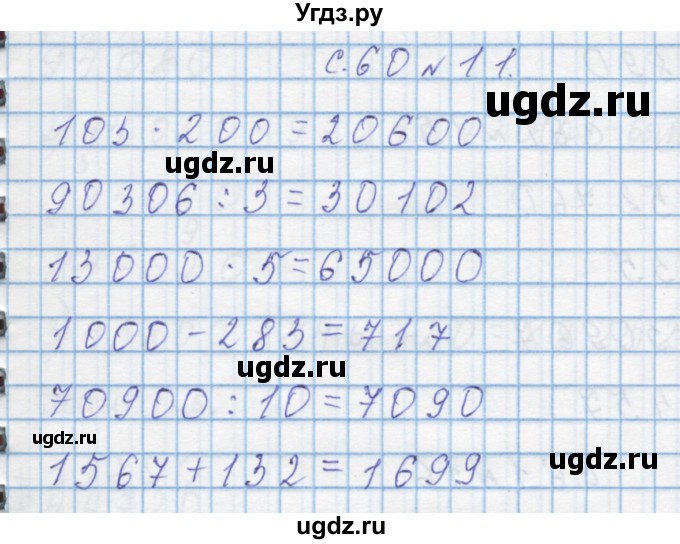 Угдз.ру
с. 60 № 11.
ugdz.ru
103 · 200 = 20600
ugdz.ru
90306 : 3 = 30102
13000 · 5 = 65000
1000 - 283 = 717
ugdz.ru
70900 : 10 = 7090
ugdz.ru
1567 + 132 = 1699
ugdz.ru
ugdz.ru